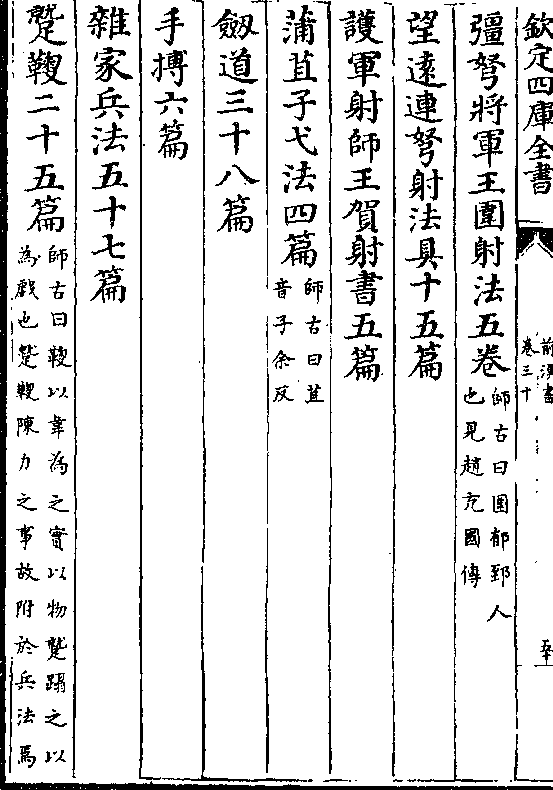 欽定四庫全書
前漢書
卷三十
彊弩將軍王圍射法五卷師古曰圍郁郅人也見趙充國傳
望遠連弩射法具十五篇
護軍射師王賀射書五篇
蒲苴子弋法四篇師古曰苴音子余反
劒道三十八篇
手搏六篇
雜家兵法五十七篇
蹵鞠二十五篇師古曰鞠以韋為之實以物蹵蹋之以為戲也蹵鞠陳力之事故附於兵法焉